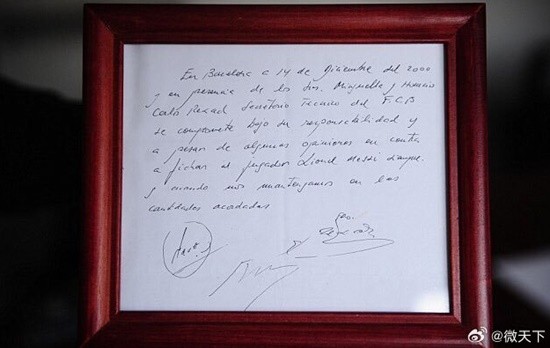 En Barcelona a 14 de Diciembre del 2000
y en presencia de los Srs. Minguella y Horacio
Carles Rexach Secretario Tecnico del F.C.B
se compromete bajo su responsabilidad y
a pesar de algunas opiniones en contra
a fichar al jugador Lionel Messi siempre
y cuando nos mantengamos en las
cantidades acordadas
@微天下